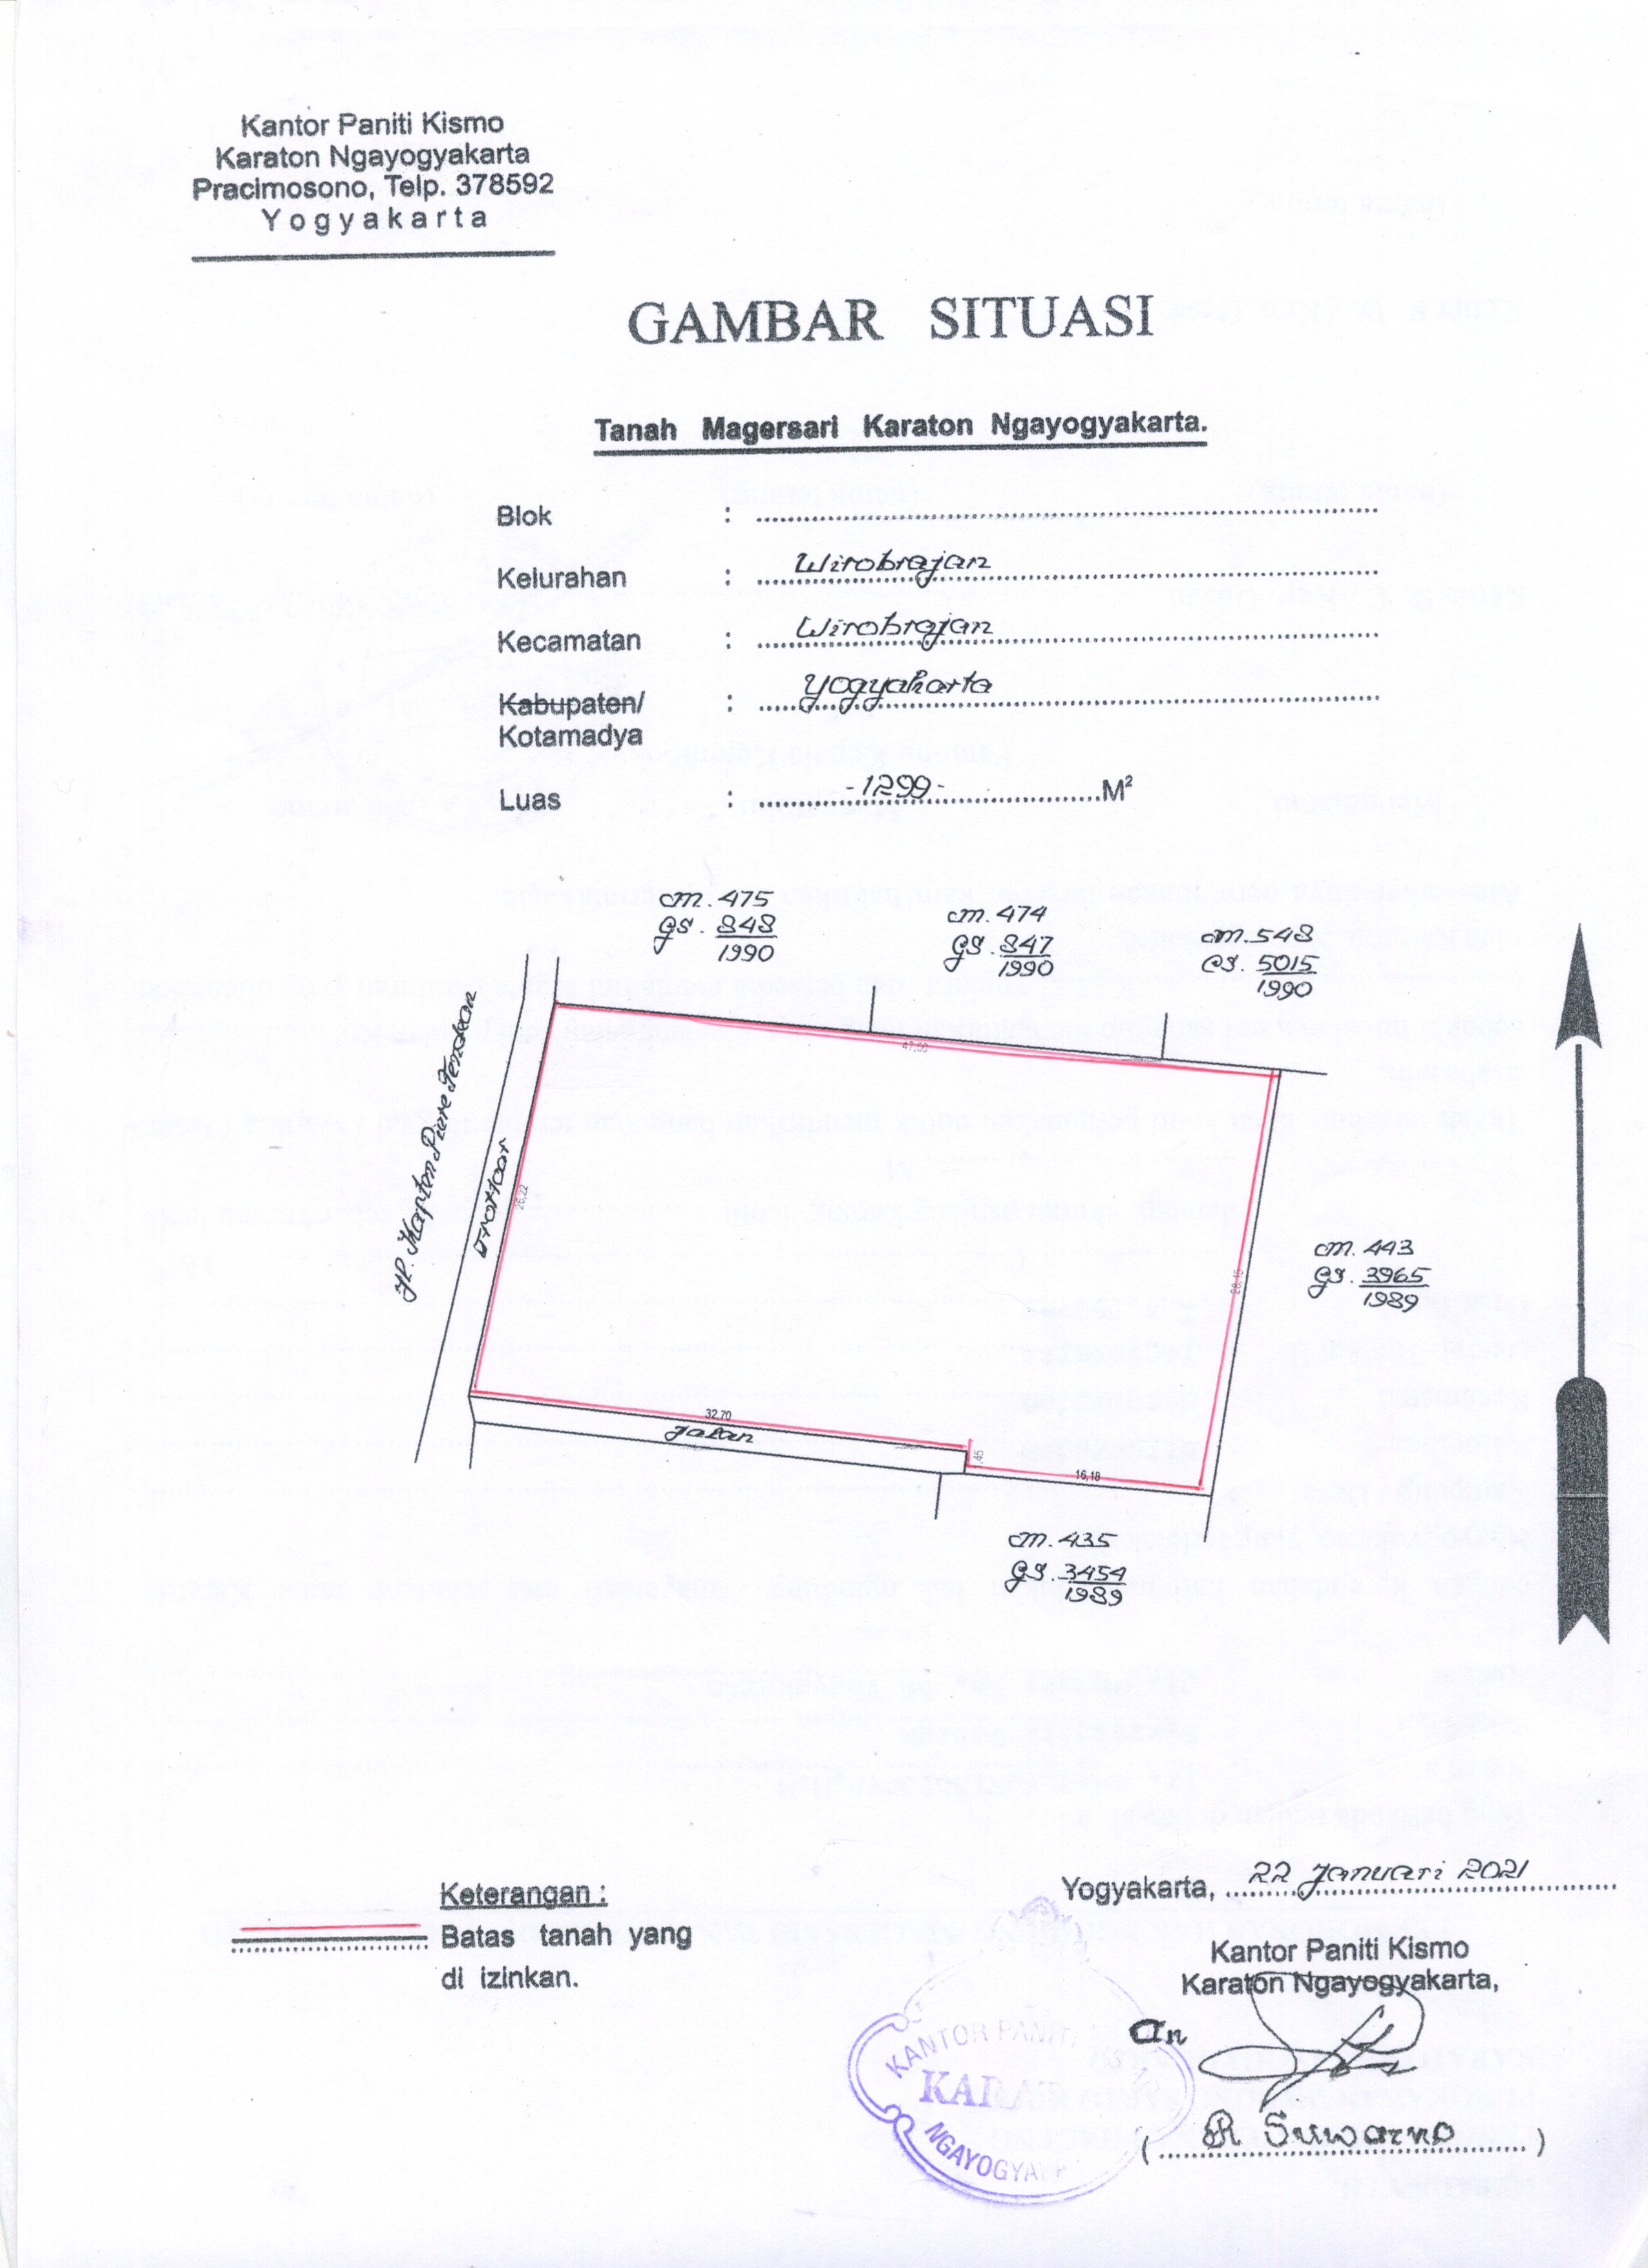 Kantor Paniti Kismo
Karaton Ngayogyakarta
Pracimosono, Telp. 378592
Yogyakarta
GAMBAR SITUASI
Tanah Magersari Karaton Ngayogyakarta.
Blok :
Kelurahan : Wirobrajan
Kecamatan : Wirobrajan
Kabupaten/ : Yogyakarta
Kotamadya
Luas : -1299- M²
M. 475
GS. 848
1990
M. 474
GS. 847
1990
M. 548
GS. 5015
1990
Jl. Kapten Piere Tendean
trottoar
47,50
26,22
28,15
M. 443
GS. 3965
1989
32,70
Jalan
1,45
16,18
M. 435
GS. 3454
1989
Keterangan :
Batas tanah yang
di izinkan.
Yogyakarta, 22 Januari 2021
Kantor Paniti Kismo
Karaton Ngayogyakarta,
an
( R Suwarno )
KANTOR PANITI
KARAT
NGAYOGYA